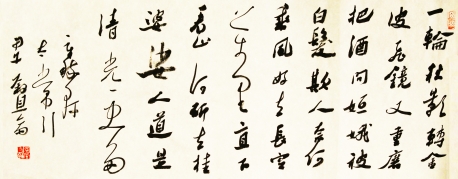 一輪秋影轉金
波飛鏡又重磨
把酒問姮娥被
白髮欺人奈何
乘風好去長空
万里直下
看山河斫去桂
婆娑人道是
清光更多
辛稼軒
太常引